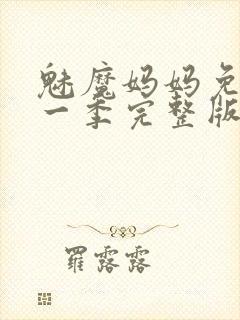 魅魔妈妈免
一季完整版
羅露露